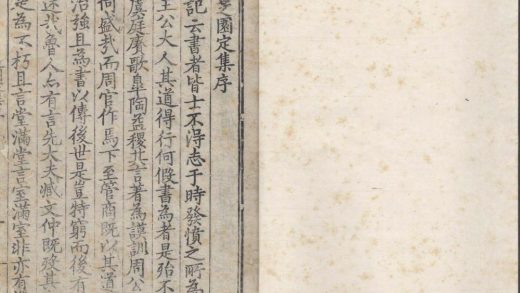 芝園定集序
記云書者皆士不淂志于時發憤之所為
王公大人其道得行何假書為者是殆不
虞廷賡歌皐陶益稷其言著為謨訓周公
何盛哉而周官作焉下至管商既以其道
治強且為書以傳後世是豈特窮而後有
述哉魯人亦有言先大夫臧文仲既歿其
是為不朽且言堂滿堂言室滿室非亦有